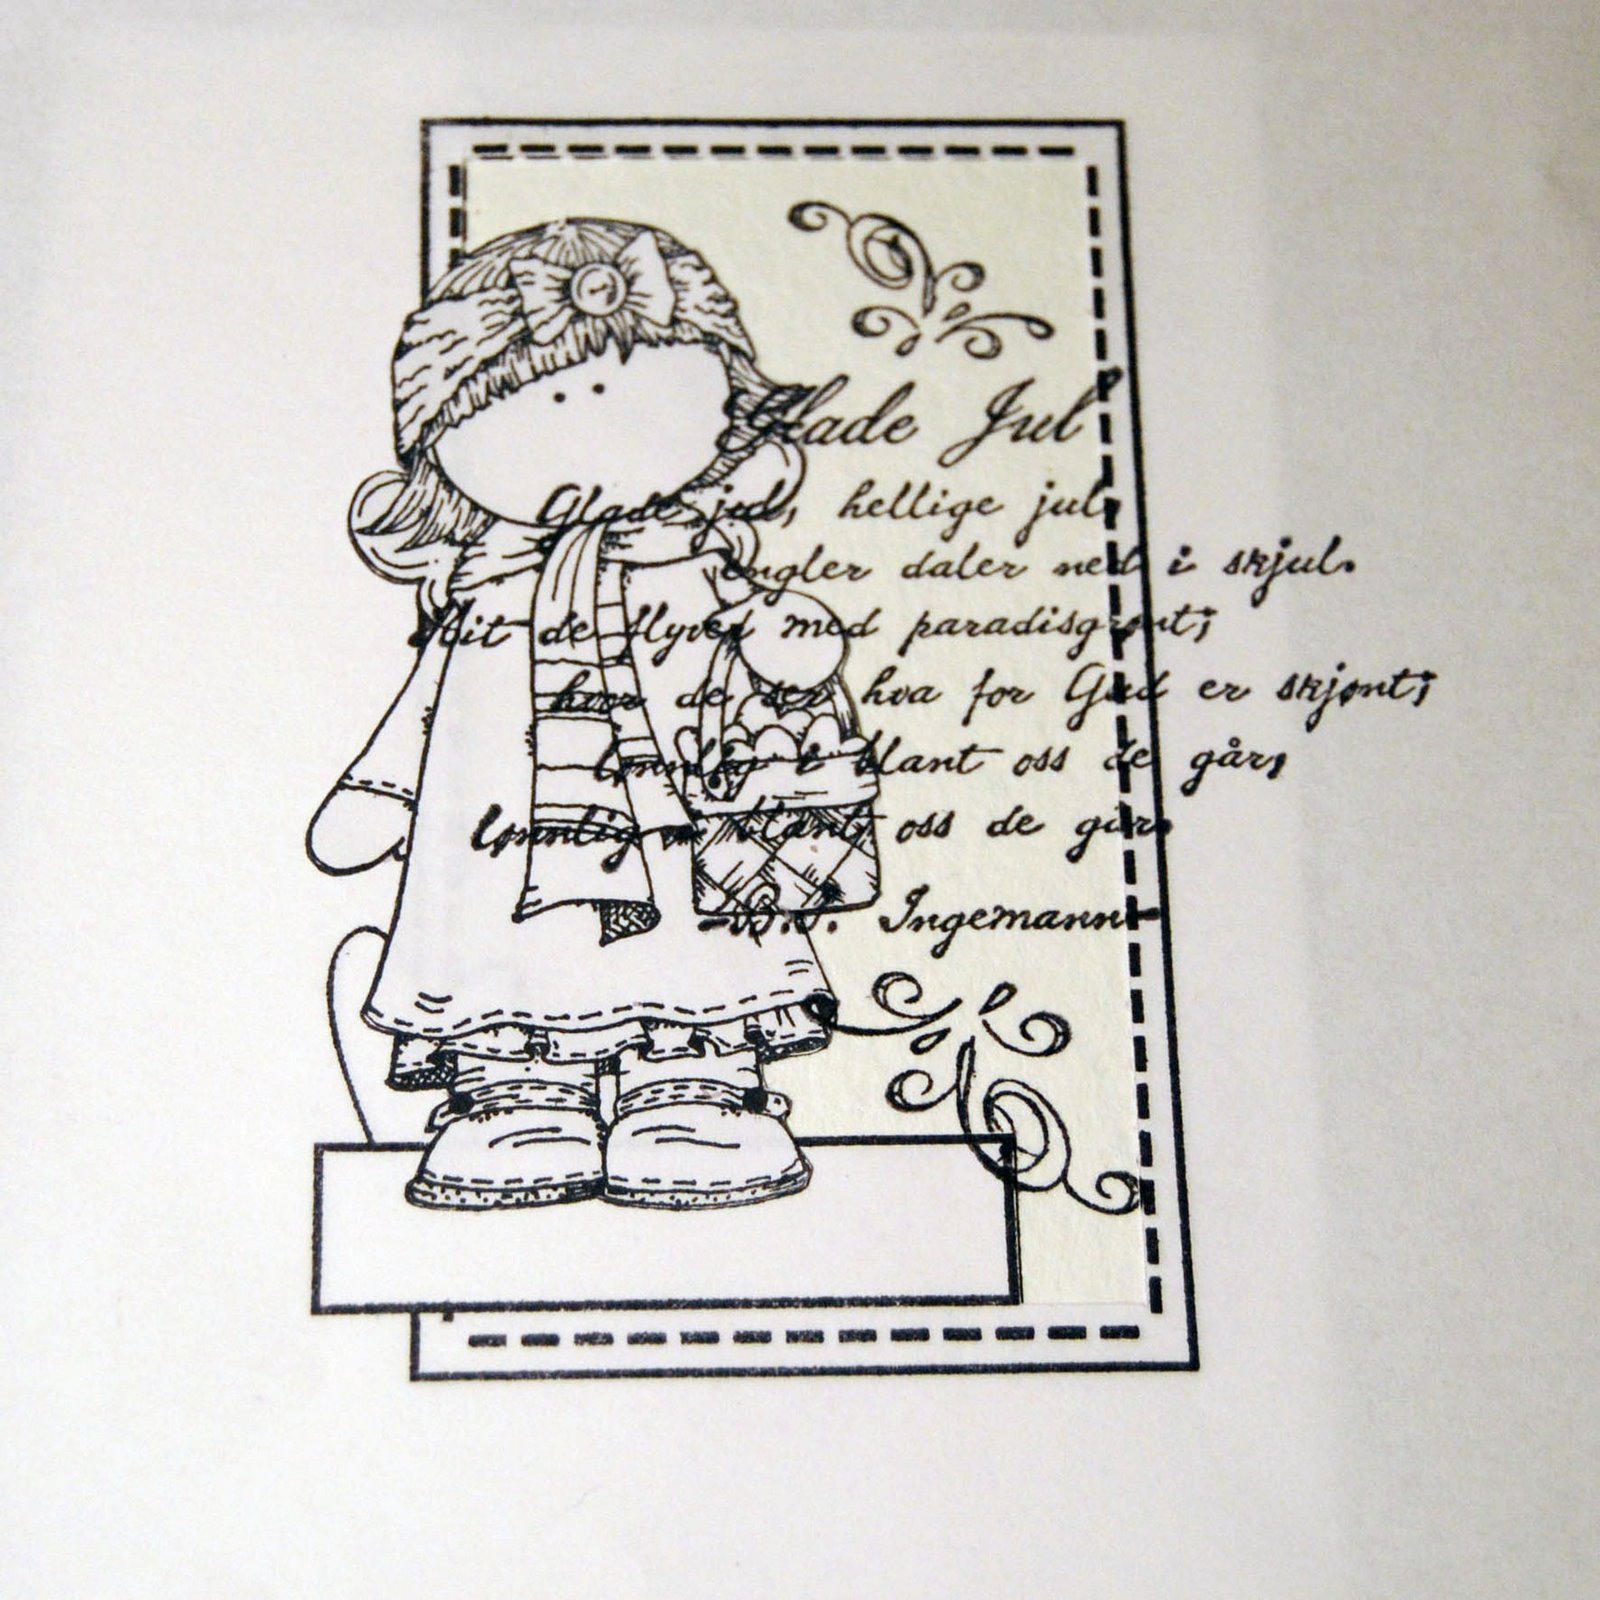 Glade Jul
Glade jul, hellige jul,
engler daler ned i skjul.
Hit de flyver med paradisgrønt;
hvor de ser hva for Gud er skjønt;
lønnlig i blant oss de går,
lønnlig i blant oss de går.
-B.S. Ingemann-